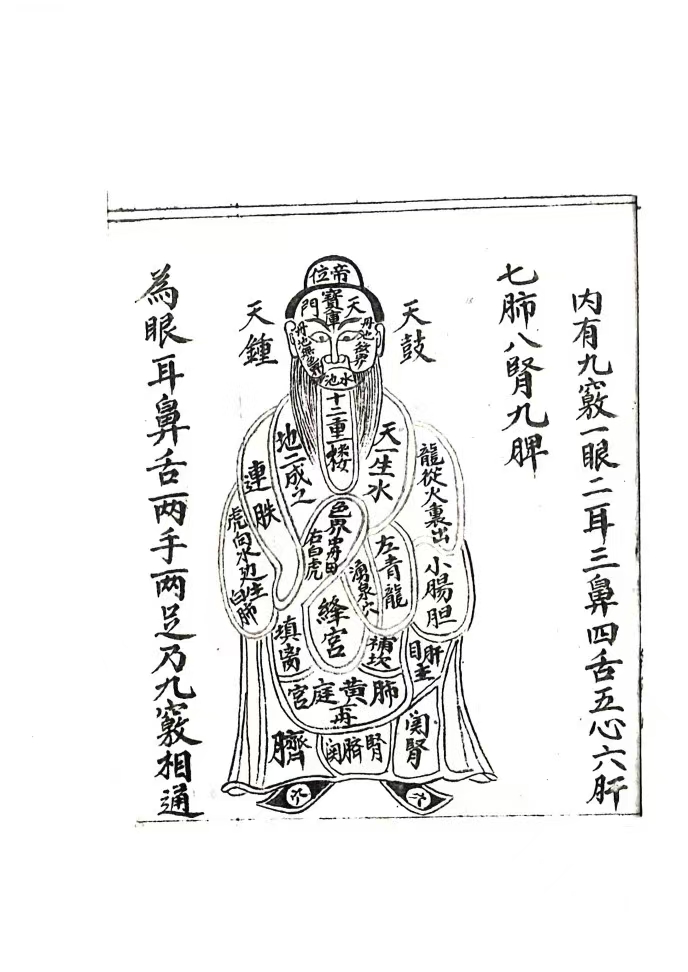 内有九竅一眼二耳三鼻四舌五心六肝
七肺八腎九脾
天鼓
帝位
天寶庫門
丹池
水池
十二重楼
天鍾
天一生水
地二成之
龍從火裏出
虎向水边生
白肺
連肤
色界丹田
右白虎
左青龍
湧泉穴
小腸胆
絳宮
填离
補坎
肝主目
肺黄庭宮
再
腎臍関
関腎
臍
為眼耳鼻舌一两手两足乃九竅相通